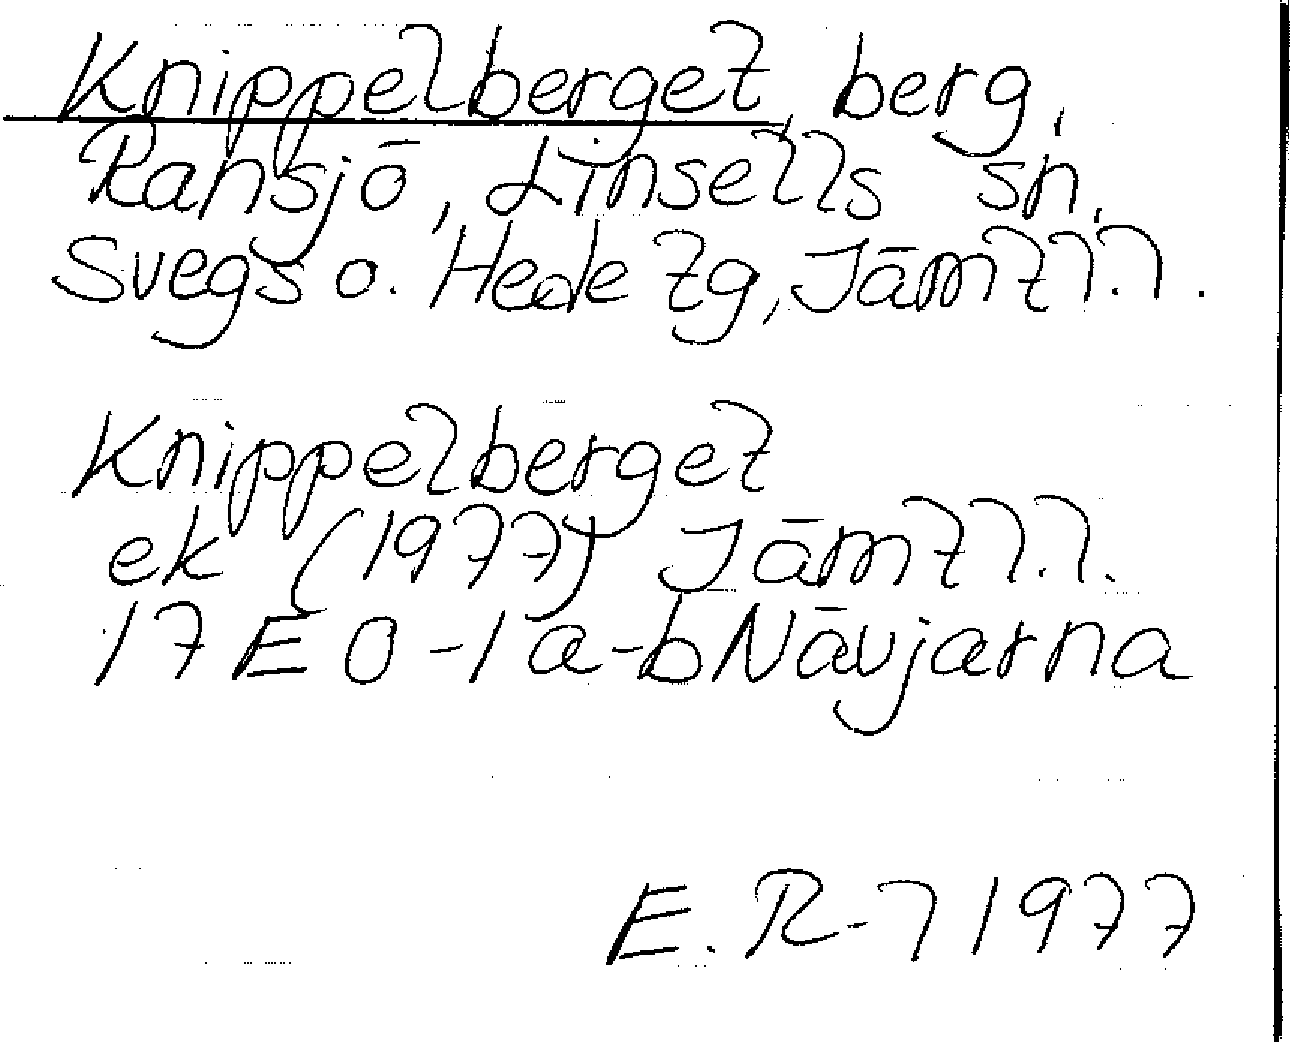 Knippelberget, berg,
Ransjö, Linsells sn,
Svegs o. Hede tg, Jämtl.l.
Knippelberget
ek (1977) Jämtl.l.
17 E 0-1 a-b Nävjarna
E. R-l 1977